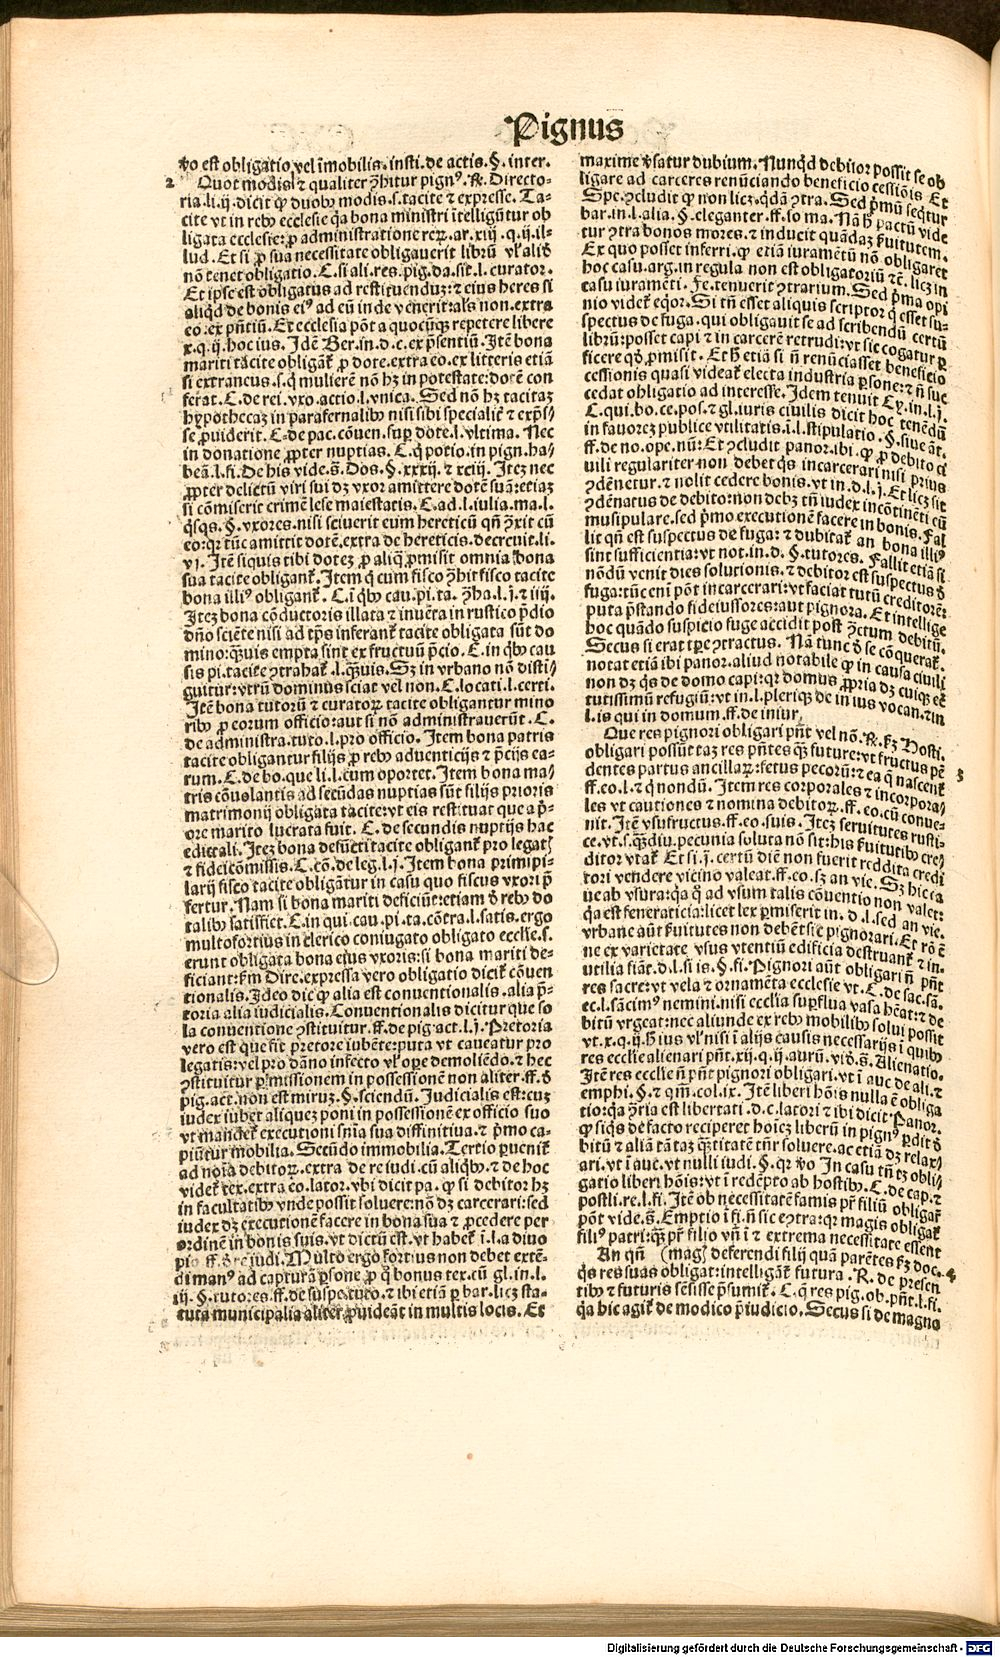 Pignus
ỽo est obligatio vel īmobilis. insti. de actis. §. inter.
2 Quot modis ⁊ qualiter ꝯ̄hitur pignꝰ. ℞. Directo-
ria. li. ij. dicit ꝙ duobꝫ modis. s. tacite ⁊ expresse. Ta-
cite vt in rebꝫ ecclesie q̄a bona ministri ītelligūtur ob
ligata ecclesie: ꝓ administratione reꝝ. ar. xij. q. ij. il-
lud. Et si ꝓ sua necessitate obligauerit librū vl' aliđ
nō tenet obligatio. C. si ali. res. pig. da. sit. l. curator.
Et ipse est obligatus ad restituenduꝫ: ⁊ eius heres si
aliqđ de bonis eiꝰ ad eū inde venerit: als non. extra
eo. ex pn̄tiū. Et ecclesia pōt a quocūqꝫ repetere libere
x. q. ij. hoc ius. Idē Ber. in. d. c. ex p̄sentiū. Itē bona
mariti tacite obligant̄ ꝓ dote. extra eo. ex litteris etiā
si extraneus. s. q̇ mulierē nō hꝫ in potestate: dotē con
ferat. C. de rei. vxo. actio. l. vnica. Sed nō hꝫ tacitaꝫ
hypothecaꝫ in parafernalibꝫ nisi sibi specialit̄ ⁊ exp̄s-
se ꝓuiderit. C. de pac. cōuen. suꝑ dote. l. vltima. Nec
in donatione ꝓpter nuptias. C. q̇ potio. in pign. ha-
beā. l. fi. De his vide. s̄. Dos. §. xxxij. ⁊ xciij. Iteꝫ nec
ꝓpter delictū viri sui dꝫ vxor amittere dotē suā: etiaꝫ
si cōmiserit crimē lese maiestatis. C. ad. l. iulia. ma. l.
q̇sqs. §. vxores. nisi sciuerit eum hereticū qn̄ ꝯ̄xit cū
eo: qꝛ tūc amittit dotē. extra de hereticis. decreuit. li.
vj. Itē si quis tibi doteꝫ ꝓ aliq̇ ꝓmisit omnia bona
sua tacite obligant̄. Item q̇ cum fisco ꝯ̄hit fisco tacite
bona illiꝰ obligant̄. C. ī qbꝫ cau. pi. ta. ꝯ̄ha. l. j. ⁊ iij.
Iteꝫ bona cōductoris illata ⁊ inuēta in rustico p̄dio
dn̄o sciēte nisi ad tp̄s inferant̄ tacite obligata sūt do
mino: qͣuis empta sint ex fructuū p̄cio. C. in qbꝫ cau
sis pi. tacite ꝯtrahat̄. l. qͣuis. Sꝫ in vrbano nō disti-
guitur: vtrū dominus sciat vel non. C. locati. l. certi.
Itē bona tutorū ⁊ curatoꝝ tacite obligantur mino
ribꝫ ꝓ eorum officio: aut si nō administrauerūt. C.
de administra. tuto. l. pro officio. Item bona patris
tacite obligantur filijs ꝓ rebꝫ aduenticijs ⁊ p̄cijs ea-
rum. C. de bo. que li. l. cum oportet. Item bona ma-
tris cōuolantis ad secūdas nuptias sūt filijs prioris
matrimonij obligata tacite: vt eis restituat que a p̄-
ore marito lucrata fuit. C. de secundis nuptijs hac
edictali. Iteꝫ bona defūcti tacite obligant̄ pro legat̄
⁊ fideicōmissis. C. cō. de leg. l. j. Item bona primipi-
larij fisco tacite obligātur in casu quo fiscus vxori p̄
fertur. Nam si bona mariti deficiūt: etiam đ rebꝫ do
talibꝫ satisfiet. C. in qui. cau. pi. ta. cōtra. l. satis. ergo
multofortius in clerico coniugato obligato eccl̄ie. s.
erunt obligata bona eius vxoris: si bona mariti de-
ficiant: ẜm Dire. expressa vero obligatio dicit̄ cōuen
tionalis. Ideo dic ꝙ alia est conuentionalis. alia p̄-
toria alia iudicialis. Conuentionalis dicitur que so
la conuentione ꝯstituitur. ff. de pig. act. l. j. Pretoria
vero est que fit pretore iubēte: puta vt caueatur pro
legatis: vel pro dāno infecto vl' ope demoliēdo. ⁊ hec
ꝯstituitur ꝑ missionem in possessionē non aliter. ff. đ
pig. act. non est miruꝫ. §. sciendū. Iudicialis est: cuꝫ
iudex iubet aliqueꝫ poni in possessionē ex officio suo
vt mandet̄ executioni sn̄ia sua diffinitiua. ⁊ p̄mo ca-
piūtur mobilia. Secūdo immobilia. Tertio ꝑuenit̄
ad noīa debitoꝝ. extra de re iudi. cū aliqbꝫ. ⁊ de hoc
videt̄ tex. extra eo. lator. vbi dicit pa. ꝙ si debitor hꝫ
in facultatibꝫ vnde possit soluere: nō dꝫ carcerari: sed
iudex dꝫ executionē facere in bona sua ⁊ ꝓcedere per
ordinē in bonis suis. vt dictū est. vt habet̄ ī. l. a diuo
pio. ff. đ re iudi. Multo ergo fortius non debet extē-
di manꝰ ad capturā ꝑsone ꝓ q̇ bonus tex. cū gl. in. l.
iij. §. tutores. ff. de suspe. tuto. ⁊ ibi etiā ꝑ bar. licꝫ sta-
tuta municipalia aliter ꝓuideāt in multis locis. Et
maxime v̄satur dubium. Nunqđ debitor possit se ob
ligare ad carceres renūciando beneficio cessiōis. Et
Spe. ꝯcludit ꝙ non licꝫ. qđā ꝯtra. Sed p̄mū seqtur
bar. in. l. alia. §. eleganter. ff. so ma. Nā ħ pactū vide
tur ꝯtra bonos mores. ⁊ inducit quādaꝫ ẜuitutem.
Ex quo posset inferri. ꝙ etiā iuramētū nō obligaret
hoc casu. arg. in regula non est obligatoriū ⁊c. licꝫ in
casu iuramēti. Fe. tenuerit ꝯtrarium. Sed p̄ma opi
nio videt̄ eqor. Si tn̄ esset aliquis scriptor q̇ esset su-
spectus de fuga. qui obligauit se ad scribendū certū
librū: posset capi ⁊ in carcerē retrudi: vt sic cogatur ꝑ
ficere qđ ꝓmisit. Et ħ etiā si n̄ renūciasset beneficio
cessionis quasi videat̄ electa industria ꝑsone: ⁊ n̄ suc
cedat obligatio ad interesse. Idem tenuit Cy. in. l. j.
C. qui. bo. ce. pos. ⁊ gl. iuris ciuilis dicit hoc tenēdū
in fauoreꝫ publice vtilitatis. ī. l. stipulatio. §. siue āt.
ff. de no. ope. nū: Et ꝯcludit panor. ibi. ꝙ ꝓ debito ci
uili regulariter non debet q̇s incarcerari nisi prius
ꝯdēnetur. ⁊ nolit cedere bonis. vt in. d. l. j. Et licꝫ sit
ꝯdēnatus de debito: non debꝫ tn̄ iudex incōtinēti cū
musipulare. sed p̄mo executionē facere in bonis. Fal
lit qn̄ est suspectus de fuga: ⁊ dubitat̄ an bona illiꝰ
sint sufficientia: vt not. in. d. §. tutores. Fallit etiā si
nōdū venit dies solutionis. ⁊ debitor est suspectus đ
fuga: tūc eni pōt incarcerari: vt faciat tutū creditorē:
puta p̄stando fideiussores: aut pignora. Et intellige
hoc quādo suspicio fuge accidit post ꝯ̄ctum debitū.
Secus si erat tꝑe ꝯtractus. Nā tunc đ se cōquerat̄.
notat etiā ibi panor. aliud notabile ꝙ in causa ciuili
non dꝫ q̇s de domo capi: qꝛ domus ꝓpria dꝫ cuiqꝫ eē
tutissimū refugiū: vt in. l. pleriqꝫ de in ius vocan. ⁊ in
l. is qui in domum. ff. de iniur.
Que res pignori obligari pn̄t vel nō. ℞. ẜꝫ Hosti.
obligari possūt taꝫ res pn̄tes qͣꝫ future: vt fructus pē
dentes partus ancillaꝝ: fetus pecorū: ⁊ ea q̄ nascent̄ 3
ff. eo. l. ⁊ q̄ nondū. Item res corporales ⁊ incorpora-
les vt cautiones ⁊ nomina debitoꝝ. ff. eo. cū conue-
nit. Itē vsufructus. ff. eo. suis. Iteꝫ seruitutes rusti-
ce. vt. s. qͣꝫdiu. pecunia soluta nō sit: his ẜuitutibꝫ cre/
ditor vtat̄. Et si. j. certū diē non fuerit reddita credi
tori vendere vicino valeat. ff. eo. sꝫ an vie. Sꝫ hic ca
ue ab vsura: q̄a q̇ ad vsum talis cōuentio non valet:
q̄a est feneraticia: licet lex ꝑmiserit in. d. l. sed an vie.
vrbane aūt ẜuitutes non debēt sic pignorari. Et rō ē
ne ex varietate vsus vtentiū edificia destruant̄ ⁊ in-
utilia fiāt. d. l. si is. §. fi. Pignori aūt obligari n̄ pn̄t
res sacre: vt vela ⁊ ornamēta ecclesie vt. C. de sac. sā.
ec. l. sācimꝰ nemini. nisi eccl̄ia suꝑflua vasa hēat: ⁊ de
bitū vrgeat: nec aliunde ex rebꝫ mobilibꝫ solui possit
vt. x. q. ij. ħ ius vl' nisi ī alijs causis necessarijs ī qbꝫ
res eccl̄ie alienari pn̄t. xij. q. ij. aurū. vid̄. s̄. Alienatio.
Itē res eccl̄ie n̄ pn̄t pignori obligari. vt ī auc̄. de ali. ⁊
emphi. §. ⁊ qm̄. col. ix. Itē liberi hōis nulla ē obliga
tio: q̄a ꝯ̄ria est libertati. d. c. lator. ⁊ ibi dicit Panor.
ꝙ siq̇s de facto reciperet hoieꝫ liberū in pignꝰ ꝑdit đ
bitū ⁊ aliā tātaꝫ qͣꝫtitatē tn̄r soluere. ac etiā dꝫ relax/
ari. vt ī auc̄. vt nulli iudi. §. qꝛ ỽo In casu tn̄ tꝫ obli/
gatio liberi hōis: vt ī redēpto ab hostibꝫ. C. de cap. ⁊
postli. re. l. fi. Itē ob necessitatē famis pr̄ filiū obligat̄
pōt vide. s̄. Emptio ī fi. n̄ sic ecōtra: qꝛ magis obligat̄
filiꝰ patri: qͣꝫ pr̄ filio vn̄ ī ⁊ extrema necessitate essent
An qn̄ (maḡ defendi filij quā parētes ẜꝫ doc. 4
q̇s res suas obligat: intelligāt̄ futura. ℞. de presen
tibꝫ ⁊ futuris sēsisse p̄sumit̄. C. q̄ res pig. ob. pn̄t. l. fi.
q̄a hic agit̄ de modico p̄iudicio. Secus si de magno
Digitalisierung gefördert durch die Deutsche Forschungsgemeinschaft - DFG